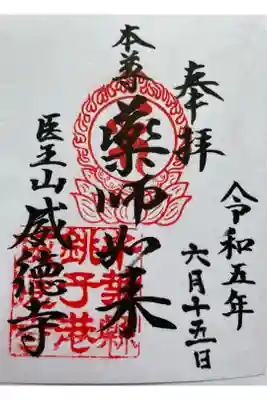 奉拝
令和五年
六月十五日
本尊
薬師如来
医王山威徳寺
千葉縣
銚子港